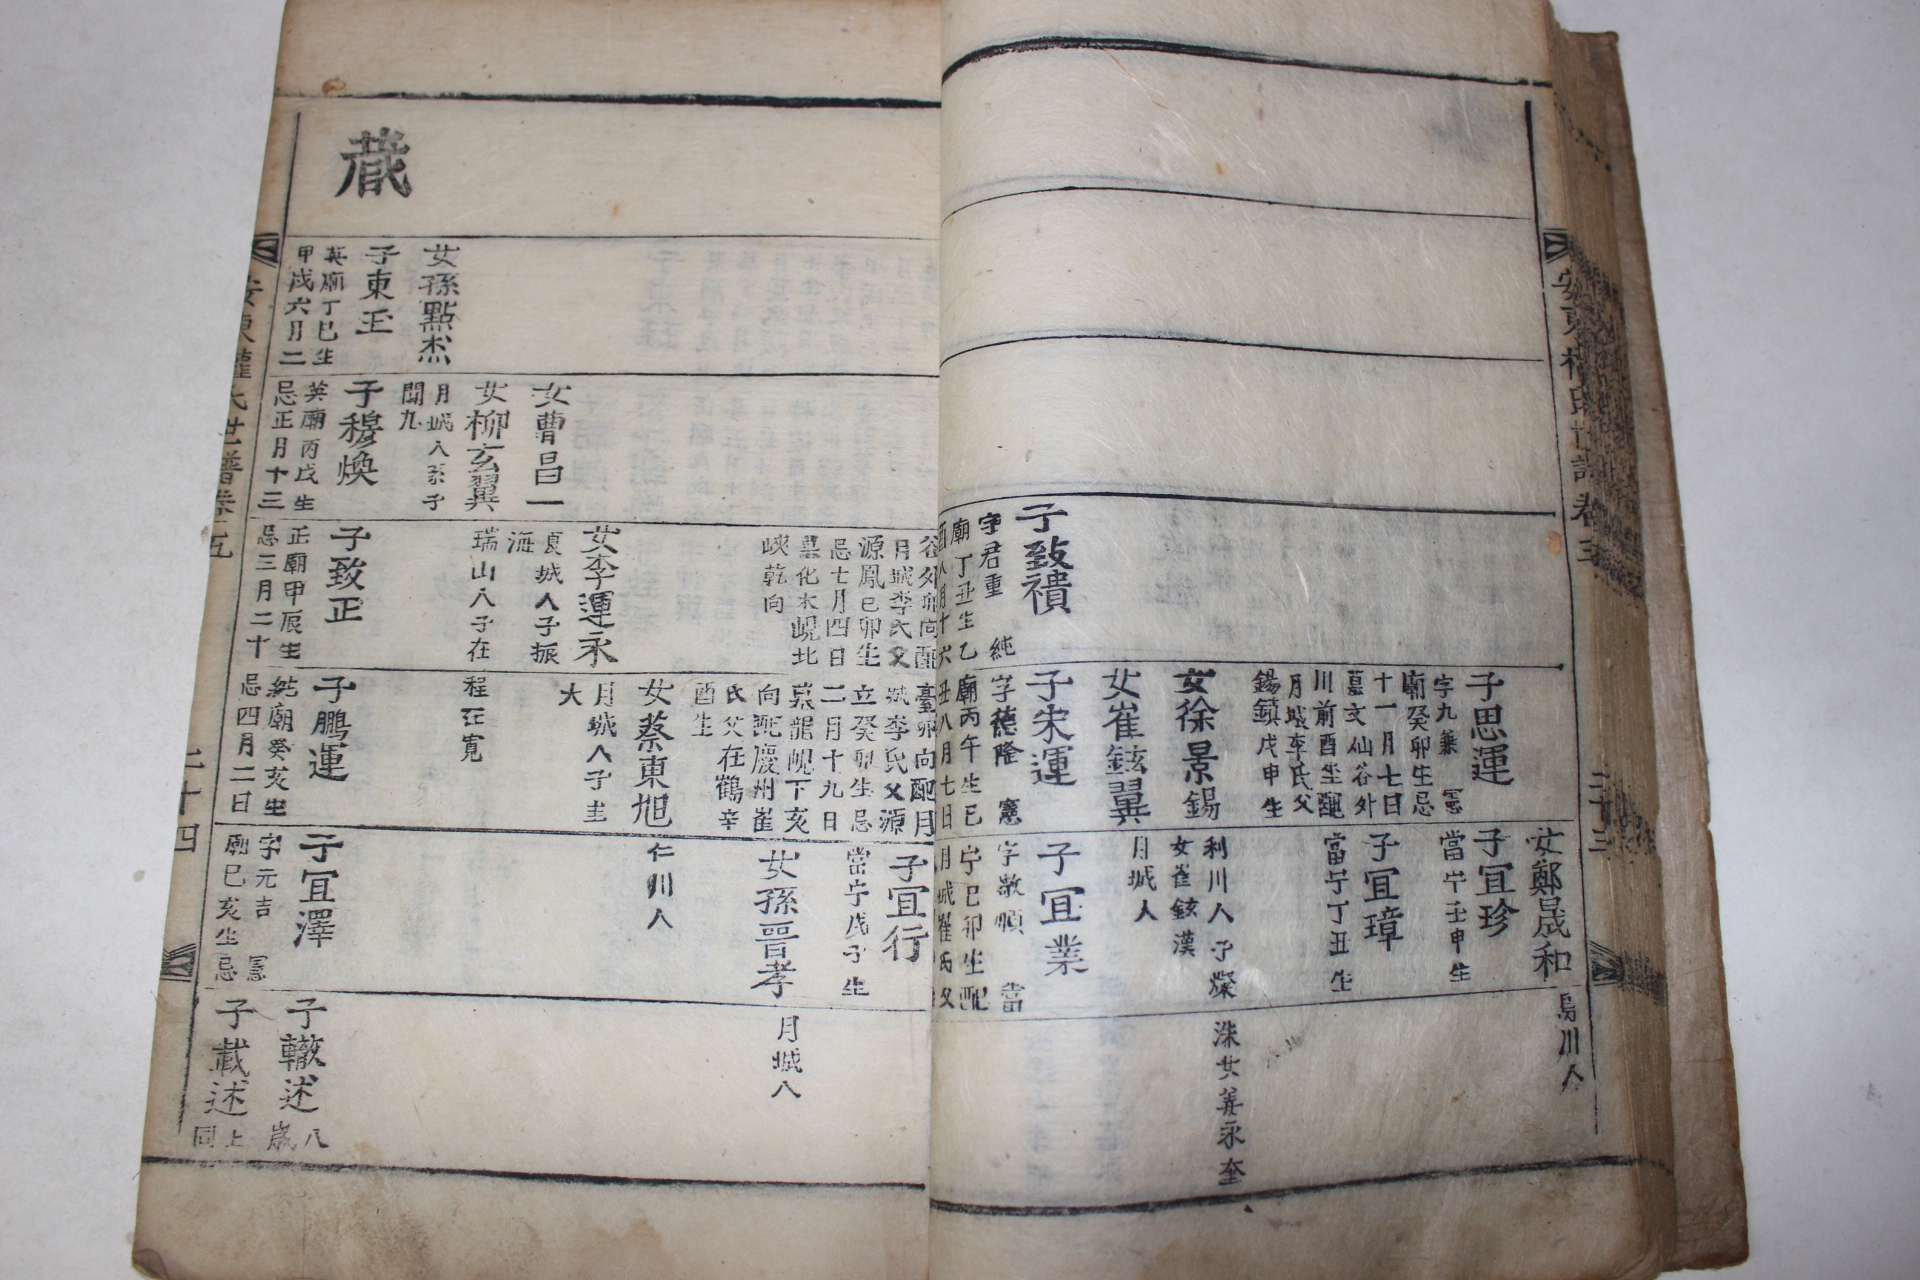 安東權氏世譜卷五
二十三
子致禶
字君重 純
廟丁丑生乙
酉八月十六
子思運
字九兼 憲
廟癸卯生忌
十一月七日
墓文仙谷外
川前酉坐配
月城李氏父
錫鎮戊申生
女徐景錫
女崔鉉翼
子宋運
字德隆 憲
廟丙午生已
丑八月七日
女鄭晟和
子宜珍
當宁壬申生
子宜璋
當宁丁丑生
利川人子燦
女崔鉉漢
月城人
子宜業
字敬順 當
宁已卯生配
月城崔氏父
烏川人
洙女姜永奎
谷外卯向配
月城李氏父
源鳳已卯生
忌七月四日
墓化木峴北
峽乾向
女李運永
夏城人子振
海
瑞山人子在
臺卯向配月
城李氏父源
立癸卯生忌
二月十九日
墓龍峴下亥
向配慶州崔
氏父在鶴辛
酉生
女蔡東旭
月城人子圭
大
程 在寬
子宜行
當宁戊子生
女孫晋孝
仁川人
月城人
女曹昌一
女柳玄翼
月城人系子
聞九
女孫點杰
子東玉
英廟丁巳生
甲戌六月二
子穆煥
英廟丙戌生
忌正月十三
子致正
正廟甲辰生
忌三月二十
子鵬運
純廟癸亥生
忌四月二日
子宜澤
字元吉 憲
廟已亥生忌
子轍述 八歲
子載述 上同
蕆
安東權氏世譜卷五
二十四